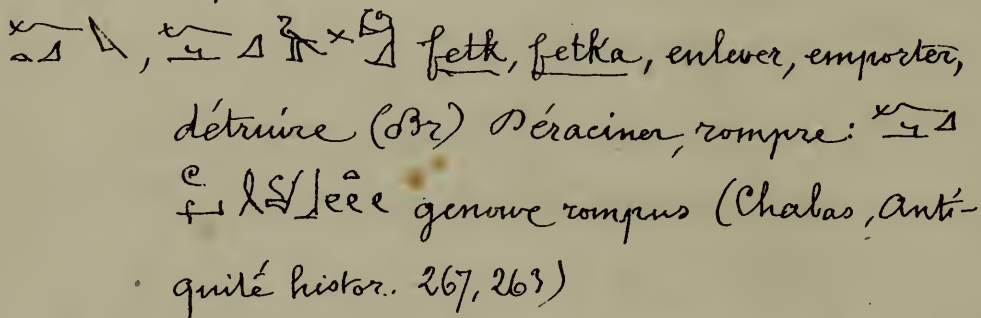 , fetk, fetka, enlever, emporter,
détruire (Br) Déraciner, rompre:
genoux rompus (Chabas, Anti-
quité histor.. 267, 263)